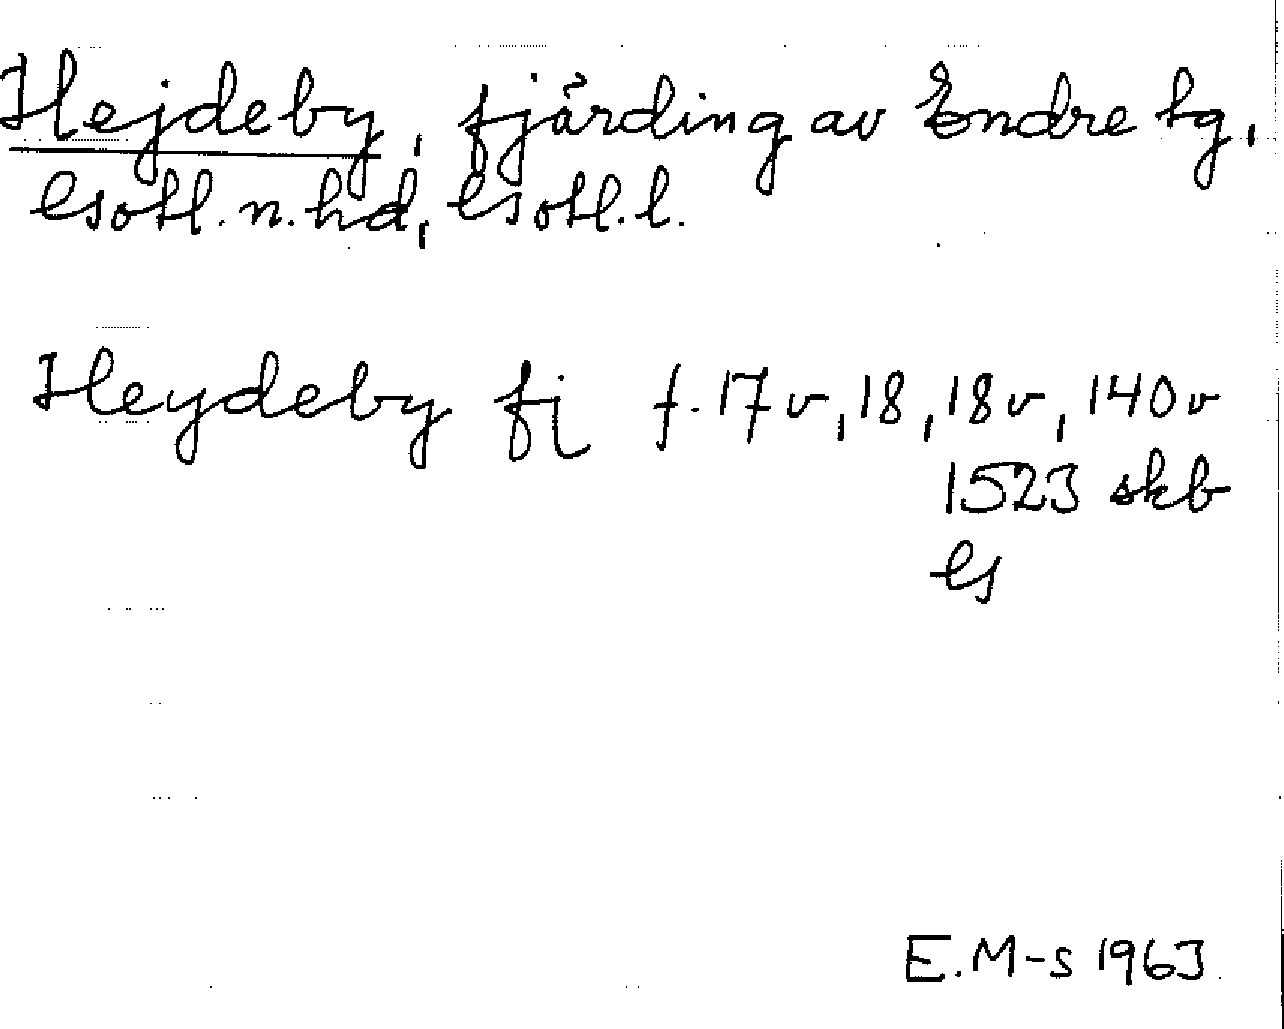 Hejdeby, fjärding av Endre tg,
Gotl. n. hd, Gotl. l.
Heydeby fj f. 17v, 18, 18v, 140v
1523 skb
G
E.M-s 1963